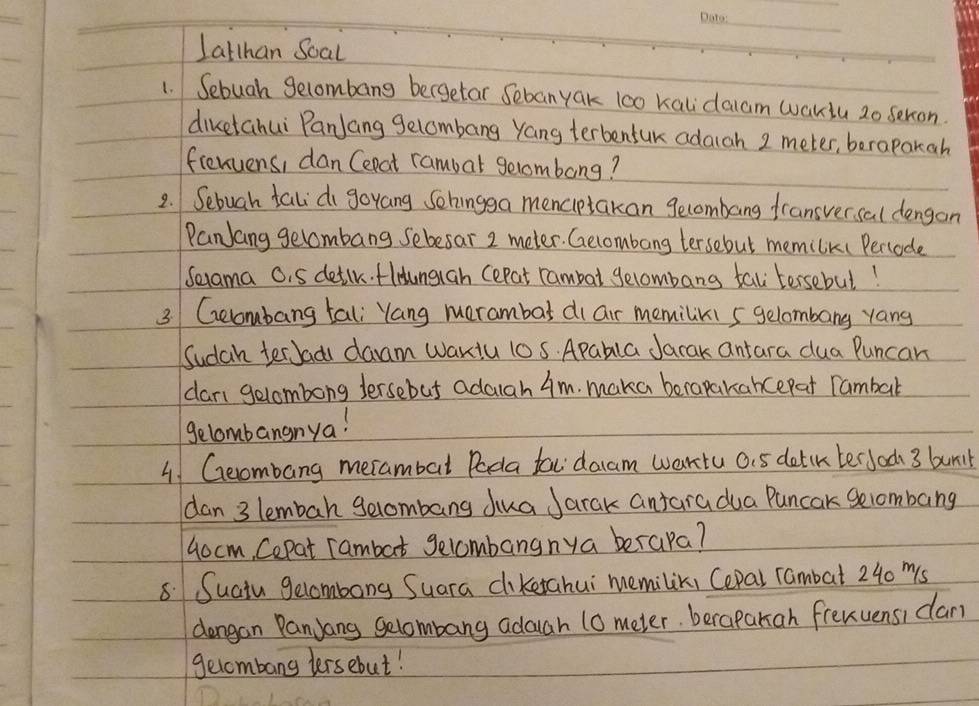 Date:
Latihan Soal
1. Sebuah gelombang bergetar sebanyak 100 kali dalam waktu 20 sekon.
diketahui Panjang gelombang yang terbentuk adalah 2 meter, berapakah
frekuensi dan Cepat rambat gelombang?
2. Sebuah tali di goyang sehingga menciptakan gelombang transversal dengan
Panjang gelombang sebesar 2 meter. Gelombang tersebut memiliki Periode
selama 0,5 detik. Hitunglah Cepat rambat gelombang tali tersebut!
3. Gelombang tali yang merambat di air memiliki 5 gelombang yang
sudah terjadi dalam waktu 10 s. Apabila Jarak antara dua Puncak
dari gelombang tersebut adalah 4m. maka berapakah cepat rambat
gelombangnya!
4. Gelombang merambat Pada tali dalam waktu 0,5 detik terjadi 3 bukit
dan 3 lembah gelombang jika Jarak antara dua Puncak gelombang
40cm, Cepat rambat gelombangnya berapa?
5. Suatu gelombang Suara diketahui memiliki Cepat rambat 240 m/s
dengan Panjang gelombang adalah 10 meter. berapakah frekuensi dari
gelombang tersebut!